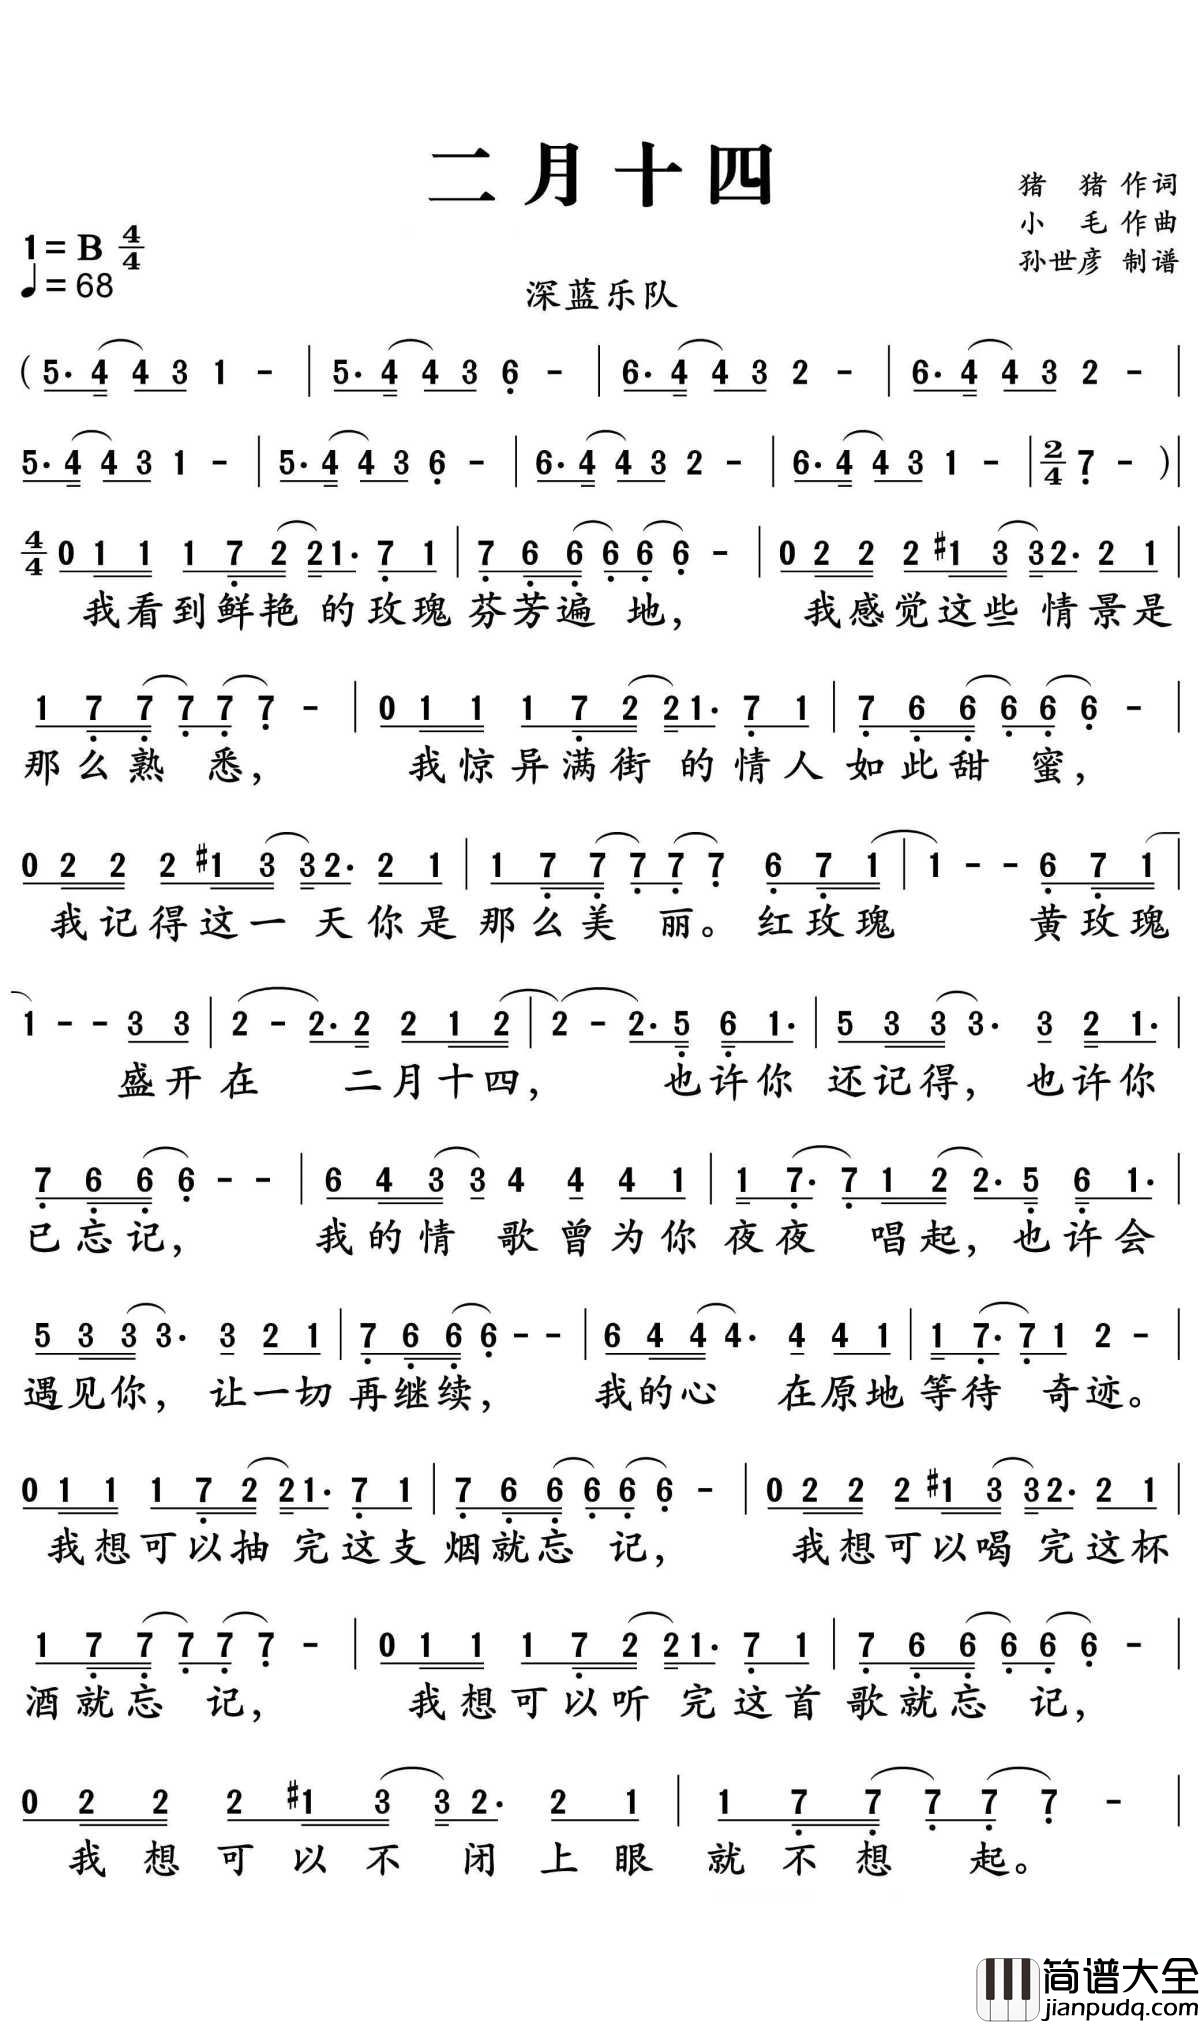 二月十四
猪 猪 作词
小 毛 作曲
孙世彦 制谱
1=B 4/4
♩=68
深蓝乐队
( 5· 4 4 3 1 - | 5· 4 4 3 6 - | 6· 4 4 3 2 - | 6· 4 4 3 2 - |
5· 4 4 3 1 - | 5· 4 4 3 6 - | 6· 4 4 3 2 - | 6· 4 4 3 1 - | 2/4 7 - ) |
4/4 0 1 1 1 7 2 2 1· 7 1 | 7 6 6 6 6 6 - | 0 2 2 2 #1 3 3 2· 2 1 |
我看到鲜艳 的玫瑰 芬芳遍 地, 我感觉这些 情景是
1 7 7 7 7 7 - | 0 1 1 1 7 2 2 1· 7 1 | 7 6 6 6 6 6 - |
那么熟 悉, 我惊异满街 的情人 如此甜 蜜,
0 2 2 2 #1 3 3 2· 2 1 | 1 7 7 7 7 7 6 7 1 | 1 - - 6 7 1 |
我记得这一 天你是 那么美 丽。 红玫瑰 黄玫瑰
1 - - 3 3 | 2 - 2· 2 2 1 2 | 2 - 2· 5 6 1· | 5 3 3 3· 3 2 1· |
盛开在 二月十四, 也许你 还记得, 也许你
7 6 6 6 - - | 6 4 3 3 4 4 4 1 | 1 7· 7 1 2 2· 5 6 1· |
已忘记, 我的情 歌曾为你 夜夜 唱起, 也许会
5 3 3 3· 3 2 1 | 7 6 6 6 - - | 6 4 4 4· 4 4 1 | 1 7· 7 1 2 - |
遇见你, 让一切 再继续, 我的心 在原地 等待 奇迹。
0 1 1 1 7 2 2 1· 7 1 | 7 6 6 6 6 6 - | 0 2 2 2 #1 3 3 2· 2 1 |
我想可以抽 完这支 烟就忘 记, 我想可以喝 完这杯
1 7 7 7 7 7 - | 0 1 1 1 7 2 2 1· 7 1 | 7 6 6 6 6 6 - |
酒就忘 记, 我想可以听 完这首 歌就忘 记,
0 2 2 2 #1 3 3 2· 2 1 | 1 7 7 7 7 7 - |
我想可以不 闭上眼 就不想 起。
简谱大全
jianpudq.com